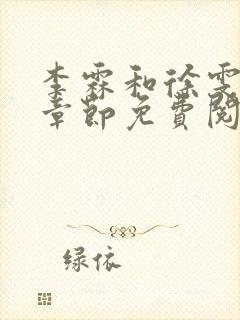 李霖和徐雯
章節免費閱
绿依